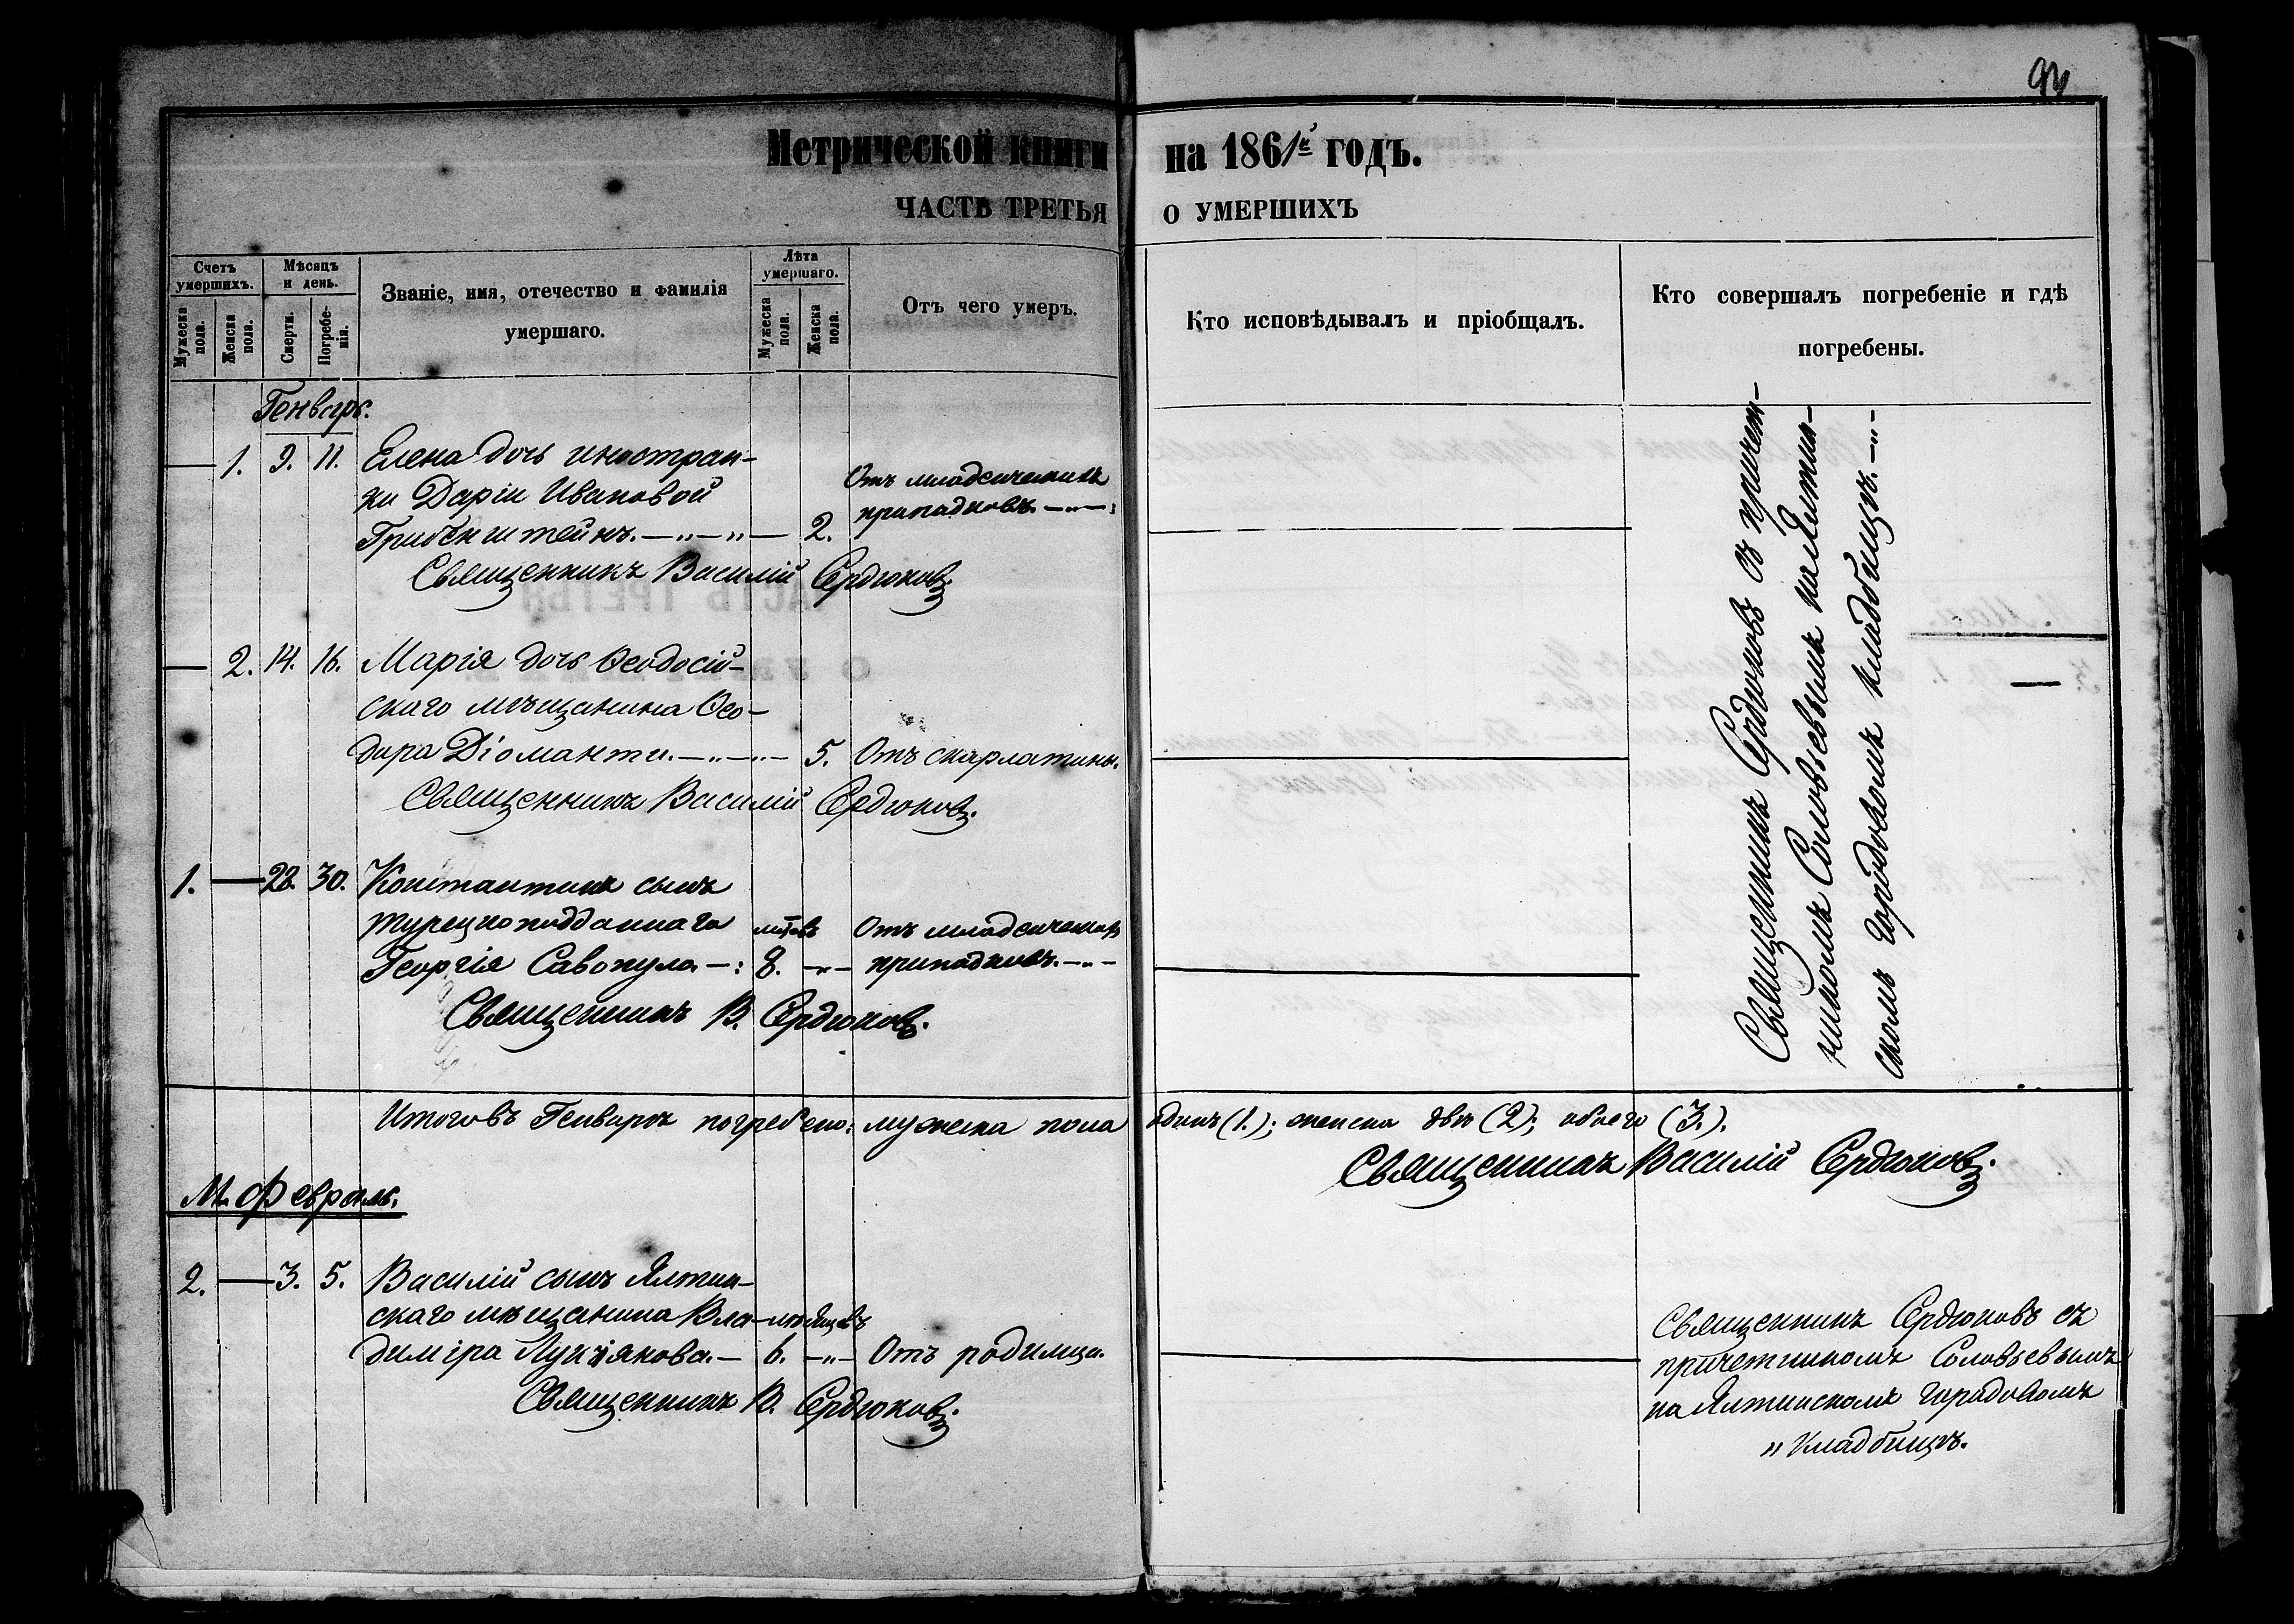 93
Метрической книги на 1861й годъ.
ЧАСТЬ ТРЕТЬЯ О УМЕРШИХЪ
Счетъ умершихъ.
Мужеска пола.
Женска пола.
Мѣсяцъ и день.
Смерти.
Погребе-
нія.
Званіе, имя, отечество и фамилія
умершаго.
Лѣта умершаго.
Мужеска пола.
Женска пола.
Отъ чего умеръ.
Кто исповѣдывалъ и пріобщалъ.
Кто совершалъ погребеніе и гдѣ
погребены.
Генварь.
— 1. 9. 11. Елена дочь иностран-
ки Даріи Ивановой
Грибенштейнъ. —"—"— 2.
Отъ младенческихъ
припадковъ. —"—:
Священникъ Василій Сердюковъ.
— 2. 14. 16. Марія дочь Ѳеодосій-
скаго мѣщанина Ѳео-
дора Діоманти. —"—"— 5. Отъ скарлатины.
Священникъ Василій Сердюковъ.
1. — 28. 30. Константинъ сынъ
турецкоподданнаго
Георгія Савопула. —: 8. —"—
Отъ младенческихъ
припадковъ. —"—
Священникъ В. Сердюковъ.
Священникъ Сердюковъ съ причет-
никомъ Соловьевымъ на Ялтин-
скомъ городовомъ кладбищѣ. —"—
Итого въ Генварѣ погребено: мужеска пола одинъ (1.); женска двѣ (2); обоего (3.).
Священникъ Василій Сердюковъ.
М. Февраль.
2. — 3. 5. Василій сынъ Ялтин-
скаго мѣщанина Вла-
диміра Лукіякова. — 6. —"— Отъ родимца.
мѣсяцевъ
Священникъ В. Сердюковъ.
Священникъ Сердюковъ съ
причетникомъ Соловьевымъ
на Ялтинскомъ городовомъ
" кладбищѣ.